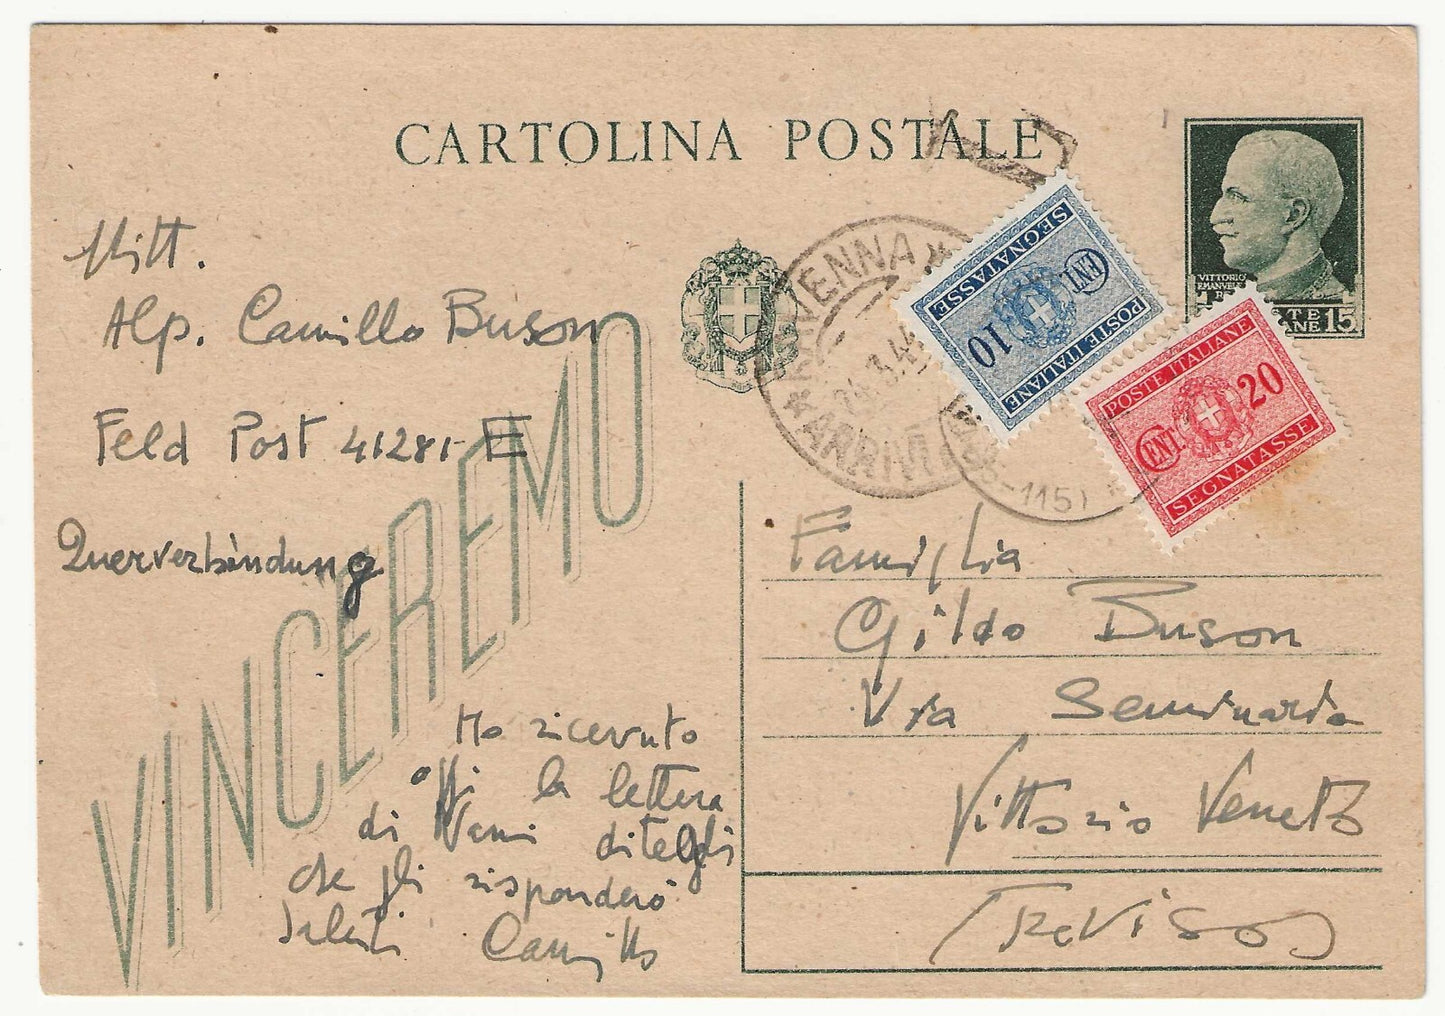 CARTOLINA POSTALE
VITTORIO
EMANUELE
15
RAVENNA
24.3.44
ARRIVI
(106-115)
SEGNATASSE
10
CENT.
POSTE ITALIANE
POSTE ITALIANE
20
CENT.
SEGNATASSE
Mitt.
Alp. Camillo Buson
Feld Post 41281-E
Querverbindung
VINCEREMO
Ho ricevuto
oggi la lettera
di Nani ditegli
che gli risponderò
Saluti Camillo
Famiglia
Gildo Buson
Via Seminario
Vittorio Veneto
(TREVISO)